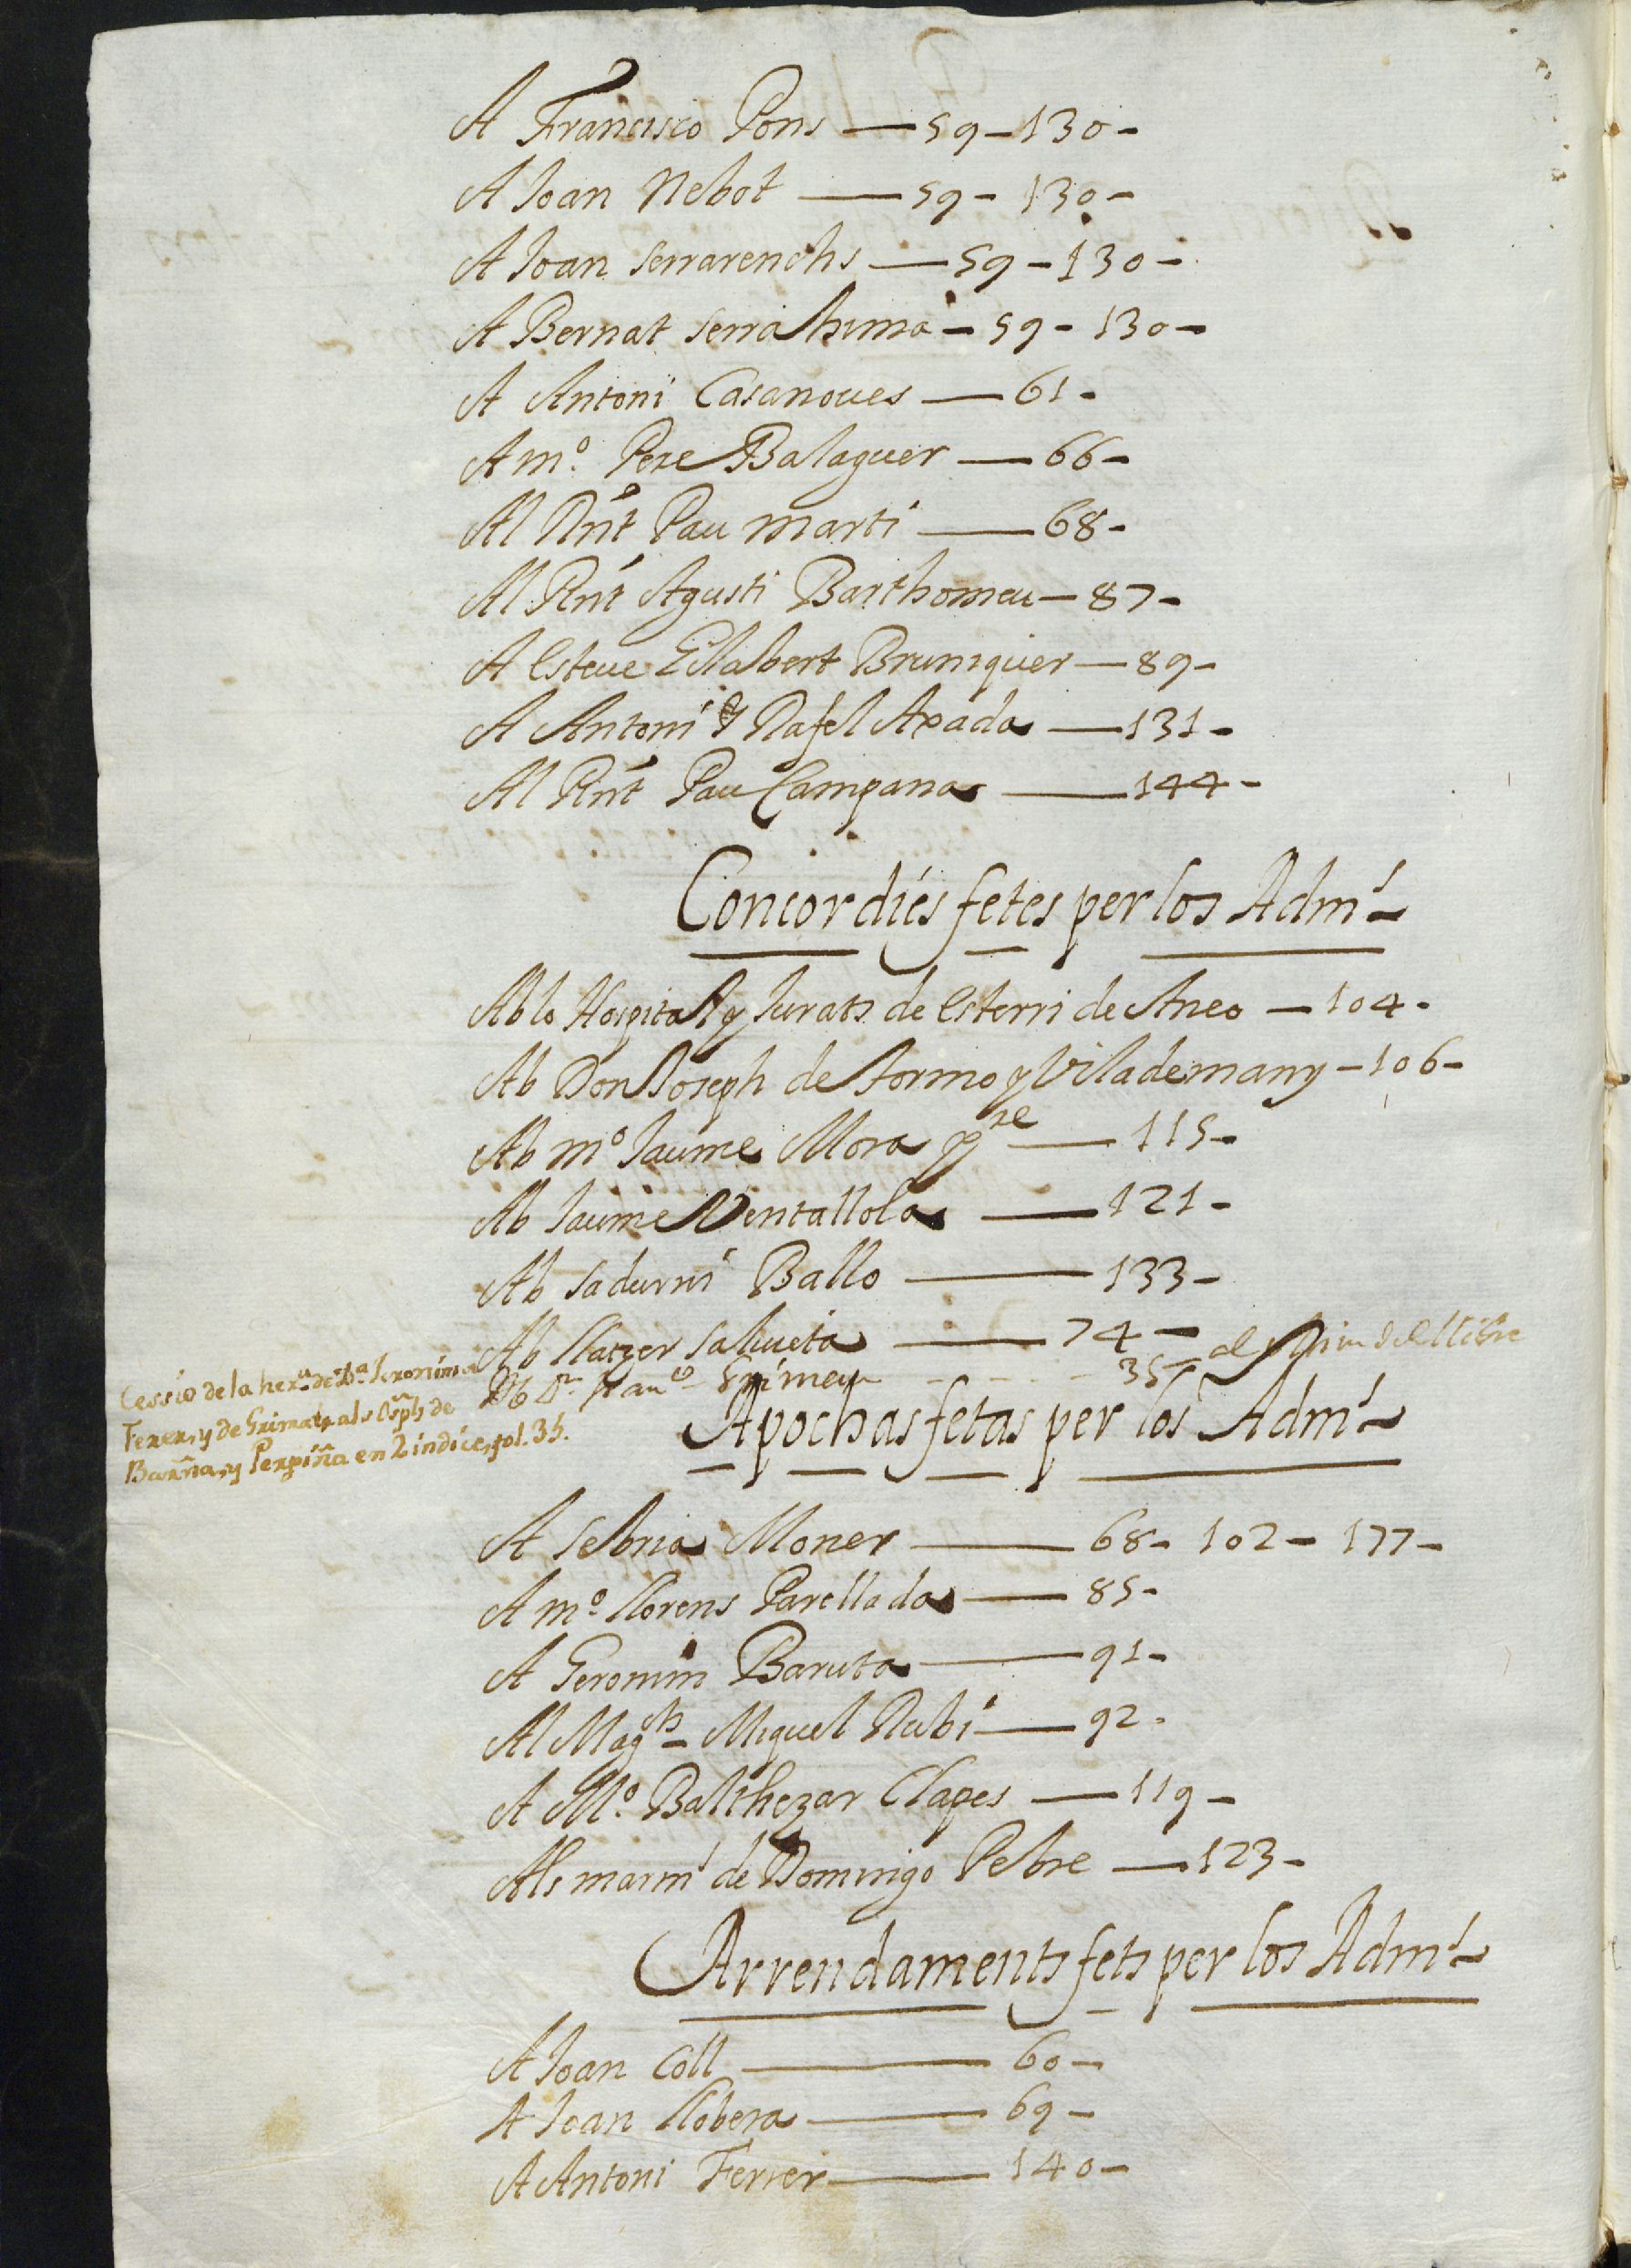 A Francisco Pons — 59 – 130 –
A Joan Nebot — 59 – 130 –
A Joan Serrarenchs — 59 – 130 –
A Bernat Serrahima – 59 – 130 –
A Antoni Casanoues — 61 –
A mº. Pere Balaguer — 66 –
Al Rnt Pau Marti — 68 –
Al Rnt Agusti Barthomeu — 87 –
A Esteue Gilabert Bruniquer — 89 –
A Antoni y Rafel Axada — 131 –
Al Rnt Pau Campana — 144 –
Concordies fetes per los Adm.
Ab lo Hospital y Jurats de Esterri de Aneo — 104 –
Ab Don Joseph de Armo y Vilademany – 106 –
Ab mº Jaume Mora — 115 –
Ab Jaume Ventallola — 121 –
Ab Sadurni Ballo — 133 –
Ab Llatzer Salueta — 74 –
Ab Dr. Franco Grimau - - - - 35 – al fin del llibre
Cessio de la hera. de Da. Jeronima
Ferer, y de Grimau, als Osph de
Barna, y Perpiña en 2 indice, fol. 35.
Apochas fetas per los Adm.
A Sebria Moner — 68 – 102 – 177 –
A mº. Llorens Parellada — 85 –
A Geronim Baruta — 91 –
Al Magch Miquel Rubi — 92 –
A Mº. Balthezar Clapes — 119 –
Als marm de Domingo Pebre — 123 –
Arrendaments fets per los Adm.
A Joan Coll — 60 –
A Joan Llobera — 69 –
A Antoni Ferrer — 140 –